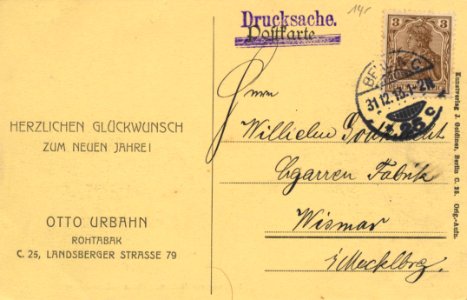 14,-
Drucksache.
Postkarte
3
BERLIN C
31.12.13.1-2N.
* 25 c
HERZLICHEN GLÜCKWUNSCH
ZUM NEUEN JAHRE!
Herrn
Wilhelm
Cigarren Fabrik
Wismar
i/Mecklbrg.
OTTO URBAHN
ROHTABAK
C. 25, LANDSBERGER STRASSE 79
Kunstverlag J. Goldiner, Berlin C. 25. Orig.-Aufn.